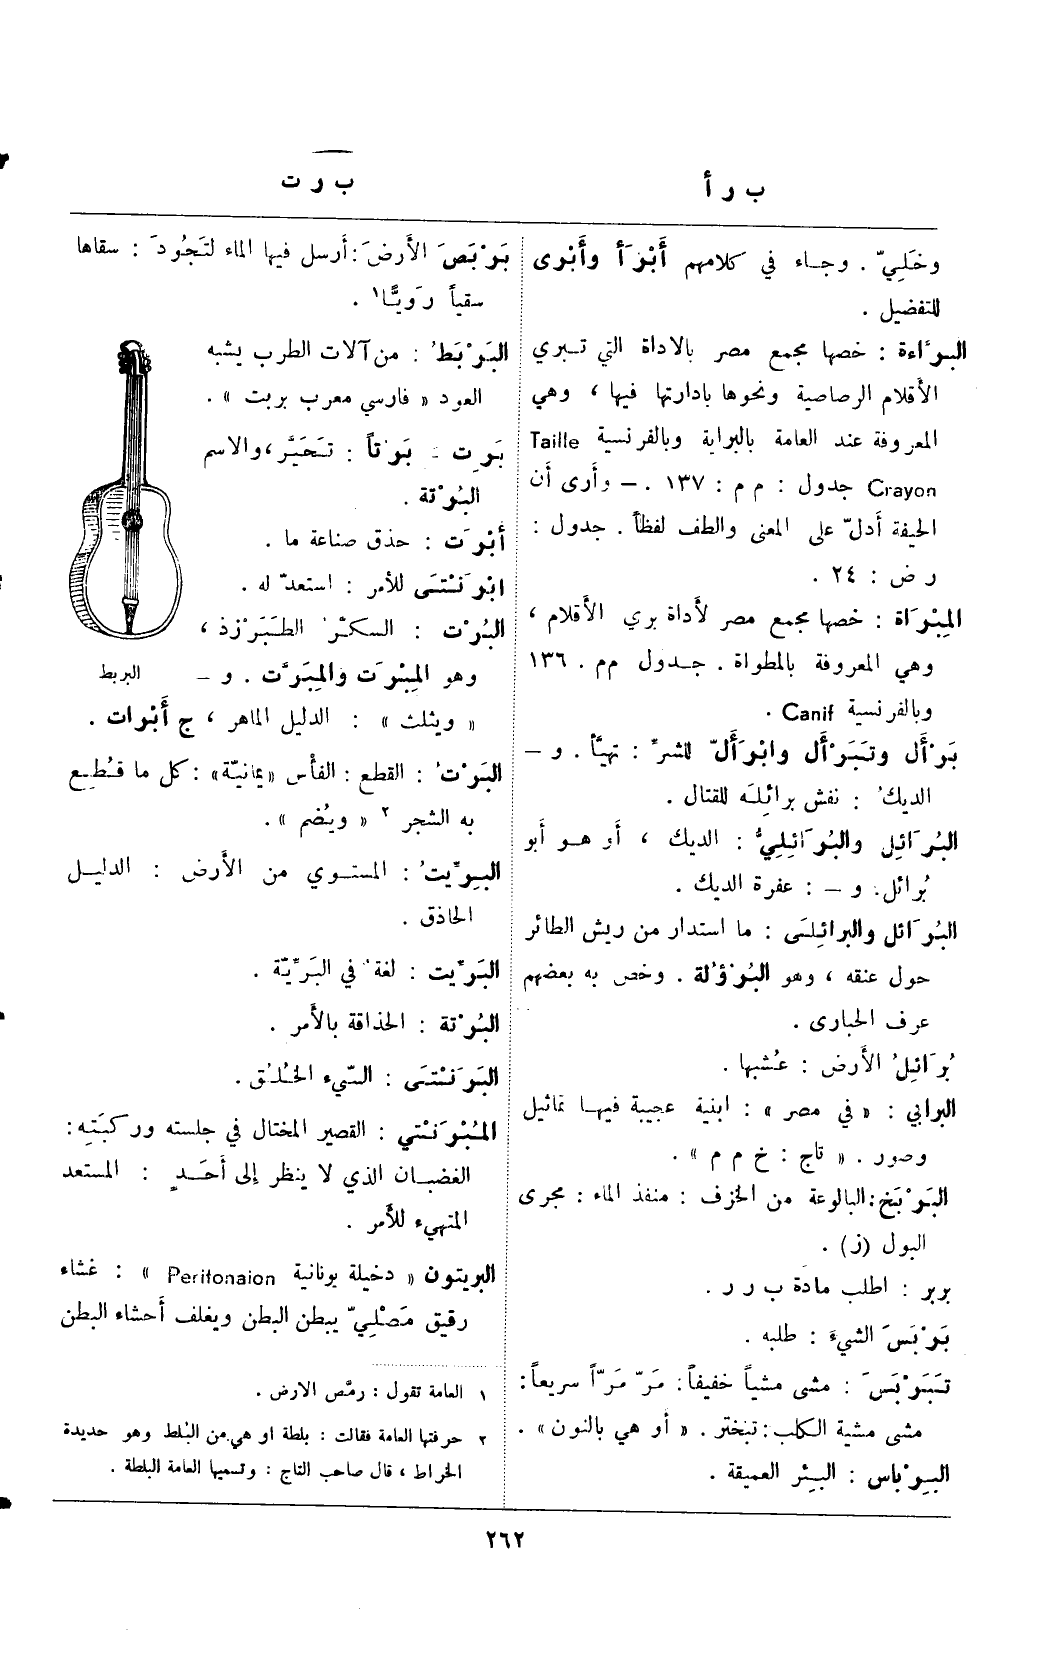 ب ر أ
ب ر ت
وخَلِيّ . وجاء في كلامهم أَبْرَأ وأَبْرى
للتفضيل .
البرَّاءة : خصها مجمع مصر بالاداة التي تبري
الأقلام الرصاصية ونحوها بادارتها فيها ، وهي
المعروفة عند العامة بالبراية وبالفرنسية Taille
Crayon جدول : م م : ١٣٧ . – وأرى أن
الحيفة أدلّ على المعنى والطف لفظاً . جدول :
ر ض : ٢٤ .
المِبْرَاة : خصها مجمع مصر لأداة بري الأقلام ،
وهي المعروفة بالمطواة . جدول م م . ١٣٦
وبالفرنسية Canif .
بَرْأَل وتَبَرْأَل وابْرَأَلّ للشرّ : تهيَّأ . و –
الديكُ : نفش برائِلَه للقتال .
البُرَائِل والبُرَائِلِيُّ : الديك ، أو هو أبو
بُرائل . و – : عفرة الديك .
البُرَائل والبرائِلَى : ما استدار من ريش الطائر
حول عنقه ، وهو البُرْؤُلة . وخص به بعضهم
عرف الحبارى .
بُرَائِلُ الأَرض : عُشبها .
البرابي : « في مصر » : ابنية عجيبة فيها تماثيل
وصور . « تاج : خ م م » .
البَرْبَخ : البالوعة من الخزف : منفذ الماء : مجرى
البول (ز) .
بربر : اطلب مادة ب ر ر .
بَرْبَسَ الشيءَ : طلبه .
تَبَرْبَسَ : مشى مشياً خفيفاً : مَرّ مَرّاً سريعاً :
مشى مشية الكلب : تبختر . « أو هي بالنون » .
البِرْباس : البئر العميقة .
بَرْبَصَ الأرضَ : أرسل فيها الماء لتَجُودَ : سقاها
سقياً رَويًّا ١ .
البَرْبَطُ : من آلات الطرب يشبه
العود « فارسي معرب بربت » .
بَرِت َ بَرَتاً : تَحَيَّر ، والاسم
البُرْتة .
أَبْرَت : حذق صناعة ما .
ابْرَنْتَى للأمر : استعدّ له .
البُرْت : السكّر الطَبَرْزذ ،
وهو المِبْرَت والمِبَرَّت . و –
البربط
« ويثلث » : الدليل الماهر ، ج أَبْرات .
البَرْتُ : القطع : الفأْس « يمانيّة » : كل ما قُطِع
به الشجر ٢ « ويُضم » .
البِرِّيتُ : المستوي من الأَرض : الدليل
الحاذق .
البَرِّيت : لغة في البَرِّيّة .
البُرْتة : الحذاقة بالأَمر .
البَرَنْتَى : السّيء الخُلُق .
المُبْرَنْتي : القصير المختال في جلسته وركبَتِه :
الغضبان الذي لا ينظر إلى أَحَدٍ : المستعد
المتهيء للأَمر .
البريتون « دخيلة يونانية Peritonaion » : غشاء
رقيق مَصْلِيّ يبطن البطن ويغلف أَحشاء البطن
١ العامة تقول : رمّص الارض .
٢ حرفتها العامة فقالت : بلطة او هي من البُلط وهو حديدة
الخراط ، قال صاحب التاج : وتسميها العامة البلطة .
٢٦٢